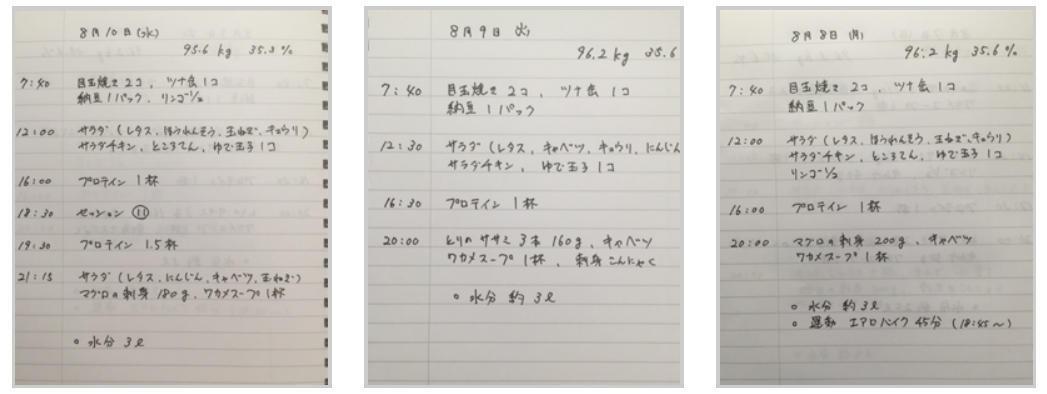 8月10日(水)
95.6 kg 35.3 %
7:40 目玉焼き 2コ、ツナ缶 1コ
納豆 1パック、リンゴ1/2
12:00 サラダ (レタス、ほうれんそう、玉ねぎ、キュウリ)
サラダチキン、ところてん、ゆで玉子 1コ
16:00 プロテイン 1杯
18:30 セッション ⑪
19:30 プロテイン 1.5杯
21:15 サラダ (レタス、にんじん、キャベツ、玉ねぎ)
マグロの刺身 180g、ワカメスープ 1杯
○ 水分 3ℓ
8月9日 火
96.2 kg 35.6
7:40 目玉焼き 2コ、ツナ缶 1コ
納豆 1パック
12:30 サラダ (レタス、キャベツ、キュウリ、にんじん
サラダチキン、ゆで玉子 1コ
16:30 プロテイン 1杯
20:00 とりのササミ 3本 160g、キャベツ
ワカメスープ 1杯、刺身こんにゃく
○ 水分 約3ℓ
8月8日(月)
96.2 kg 35.6 %
7:40 目玉焼き 2コ、ツナ缶 1コ
納豆 1パック
12:00 サラダ (レタス、ほうれんそう、玉ねぎ、キュウリ)
サラダチキン、ところてん、ゆで玉子 1コ
リンゴ1/2
16:00 プロテイン 1杯
20:00 マグロの刺身 200g、キャベツ
ワカメスープ 1杯
○ 水分 約3ℓ
○ 運動 エアロバイク 45分 (18:45〜)